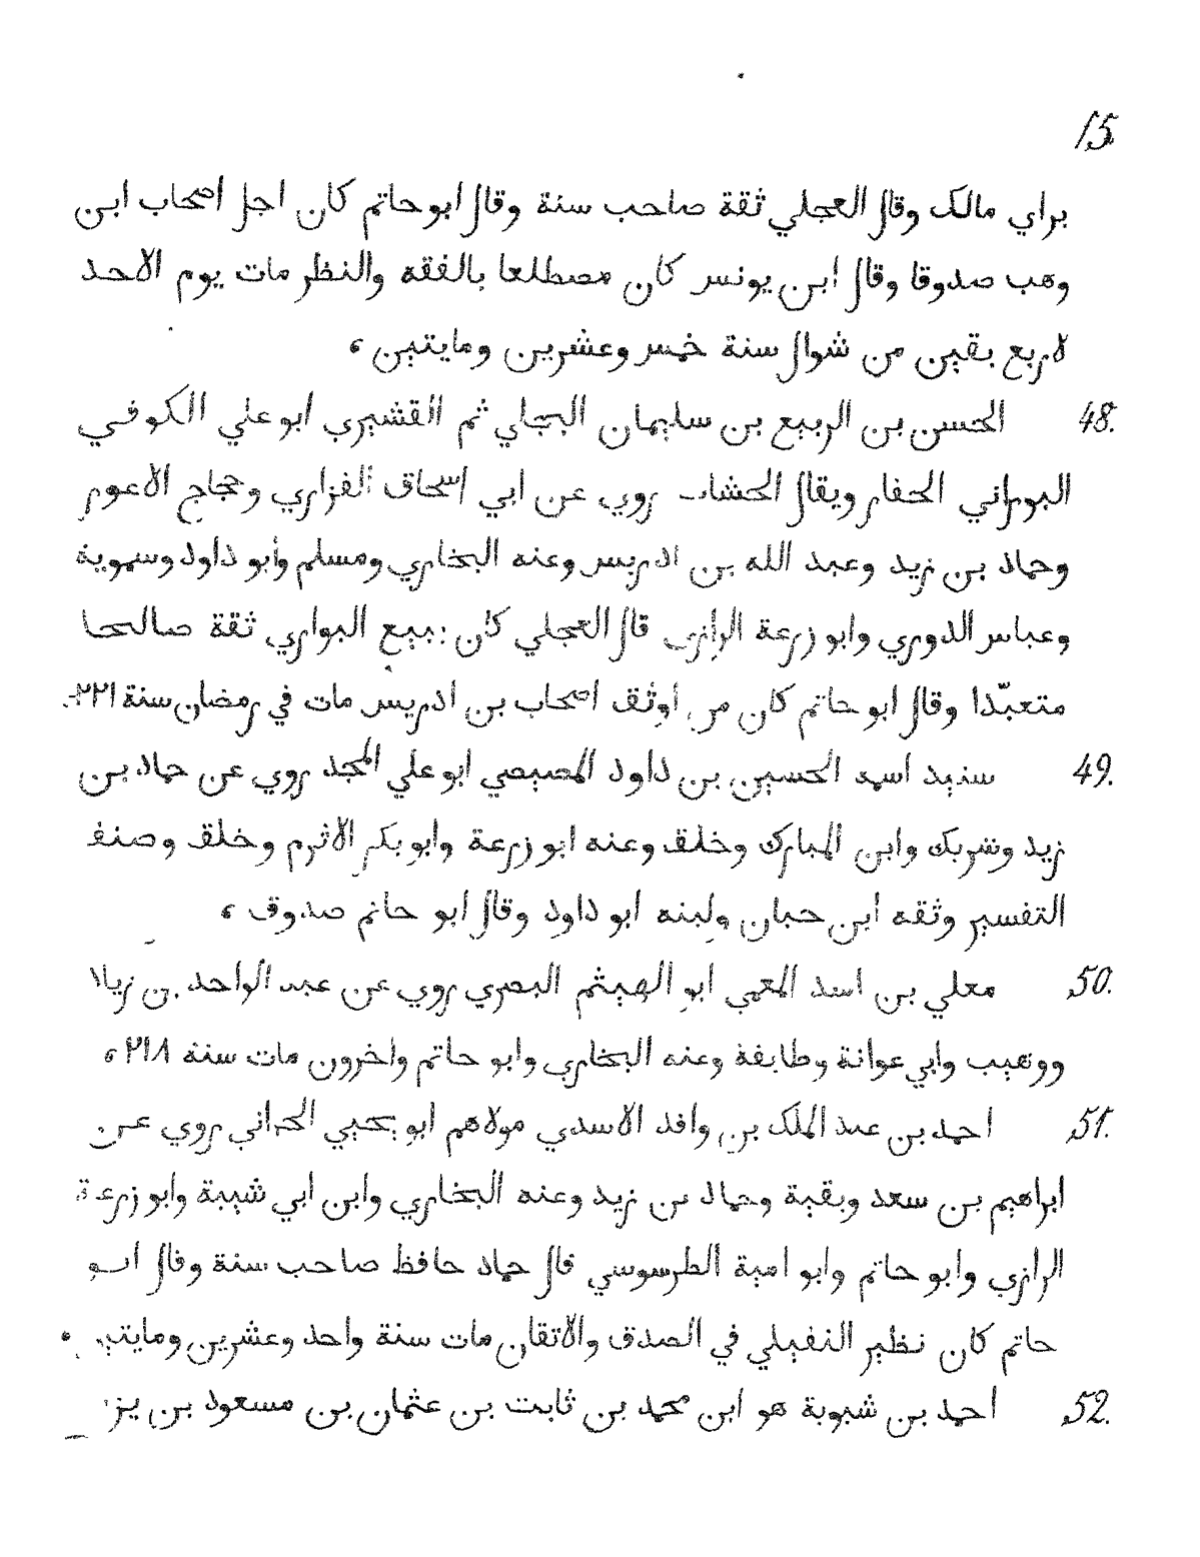 15.
براي مالك وقال العجلي ثقة صاحب سنة وقال ابو حاتم كان اجل اصحاب ابن
وهب صدوقا وقال ابن يونس كان مصطلعا بالفقه والنظر مات يوم الاحد
لاربع بقين من شوال سنة خمس وعشرين ومايتين ،
48. الحسن بن الربيع بن سليمان البجلي ثم القشيري ابو علي الكوفي
البوراني الحفار ويقال الخشاب روي عن ابي اسحاق الفزاري وحجاج الاعور
وحماد بن زيد وعبد الله بن ادريس وعنه البخاري ومسلم وأبو داود وسموية
وعباس الدوري وابو زرعة الرازي قال العجلي كان يبيع البواري ثقة صالحا
متعبّدا وقال ابو حاتم كان من اوثق اصحاب بن ادريس مات في رمضان سنة ٢٢١
49. سنيد اسمه الحسين بن داود المصيصي ابو علي المجد روي عن حماد بن
زيد وشريك وابن المبارك وخلق وعنه ابو زرعة وابو بكر الاثرم وخلق وصنف
التفسير وثقه ابن حبان ولينه ابو داود وقال ابو حاتم صدوق ،
50. معلي بن اسد العمي ابو الهيثم البصري روي عن عبد الواحد بن زياد
ووهيب وابي عوانة وطايفة وعنه البخاري وابو حاتم واخرون مات سنة ٢١٨ ،
51. احمد بن عبد الملك بن وافد الاسدي مولاهم ابو يحيي الحراني روي عن
ابراهيم بن سعد وبقية وحماد بن زيد وعنه البخاري وابن ابي شيبة وابو زرعة
الرازي وابو حاتم وابو امية الطرسوسي قال حماد حافظ صاحب سنة وقال ابو
حاتم كان نظير النفيلي في الصدق والاتقان مات سنة واحد وعشرين ومايتين .
52. احمد بن شبوية هو ابن محمد بن ثابت بن عثمان بن مسعود بن يز